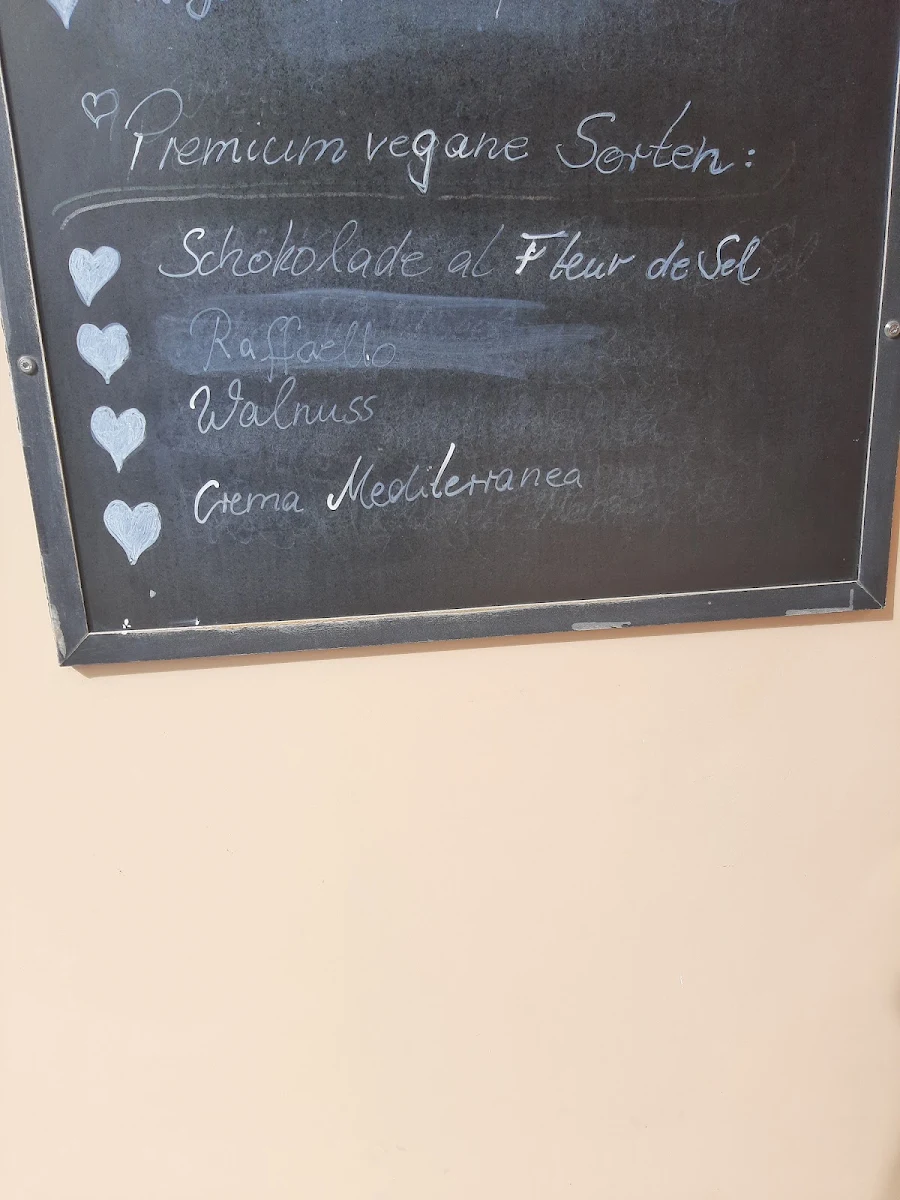 Premium vegane Sorten:
Schokolade al Fleur de Sel
Raffaello
Walnuss
Crema Mediterranea